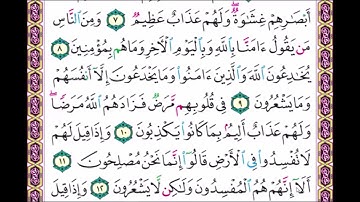 أَبْصَٰرِهِمْ غِشَٰوَةٌ وَلَهُمْ عَذَابٌ عَظِيمٌ ٧ وَمِنَ ٱلنَّاسِ
مَن يَقُولُ ءَامَنَّا بِٱللَّهِ وَبِٱلْيَوْمِ ٱلْءَاخِرِ وَمَا هُم بِمُؤْمِنِينَ ٨
يُخَٰدِعُونَ ٱللَّهَ وَٱلَّذِينَ ءَامَنُوا۟ وَمَا يَخْدَعُونَ إِلَّآ أَنفُسَهُمْ
وَمَا يَشْعُرُونَ ٩ فِى قُلُوبِهِم مَّرَضٌ فَزَادَهُمُ ٱللَّهُ مَرَضًا ۖ
وَلَهُمْ عَذَابٌ أَلِيمٌۢ بِمَا كَانُوا۟ يَكْذِبُونَ ١٠ وَإِذَا قِيلَ لَهُمْ
لَا تُفْسِدُوا۟ فِى ٱلْأَرْضِ قَالُوٓا۟ إِنَّمَا نَحْنُ مُصْلِحُونَ ١١
أَلَآ إِنَّهُمْ هُمُ ٱلْمُفْسِدُونَ وَلَٰكِن لَّا يَشْعُرُونَ ١٢ وَإِذَا قِيلَ